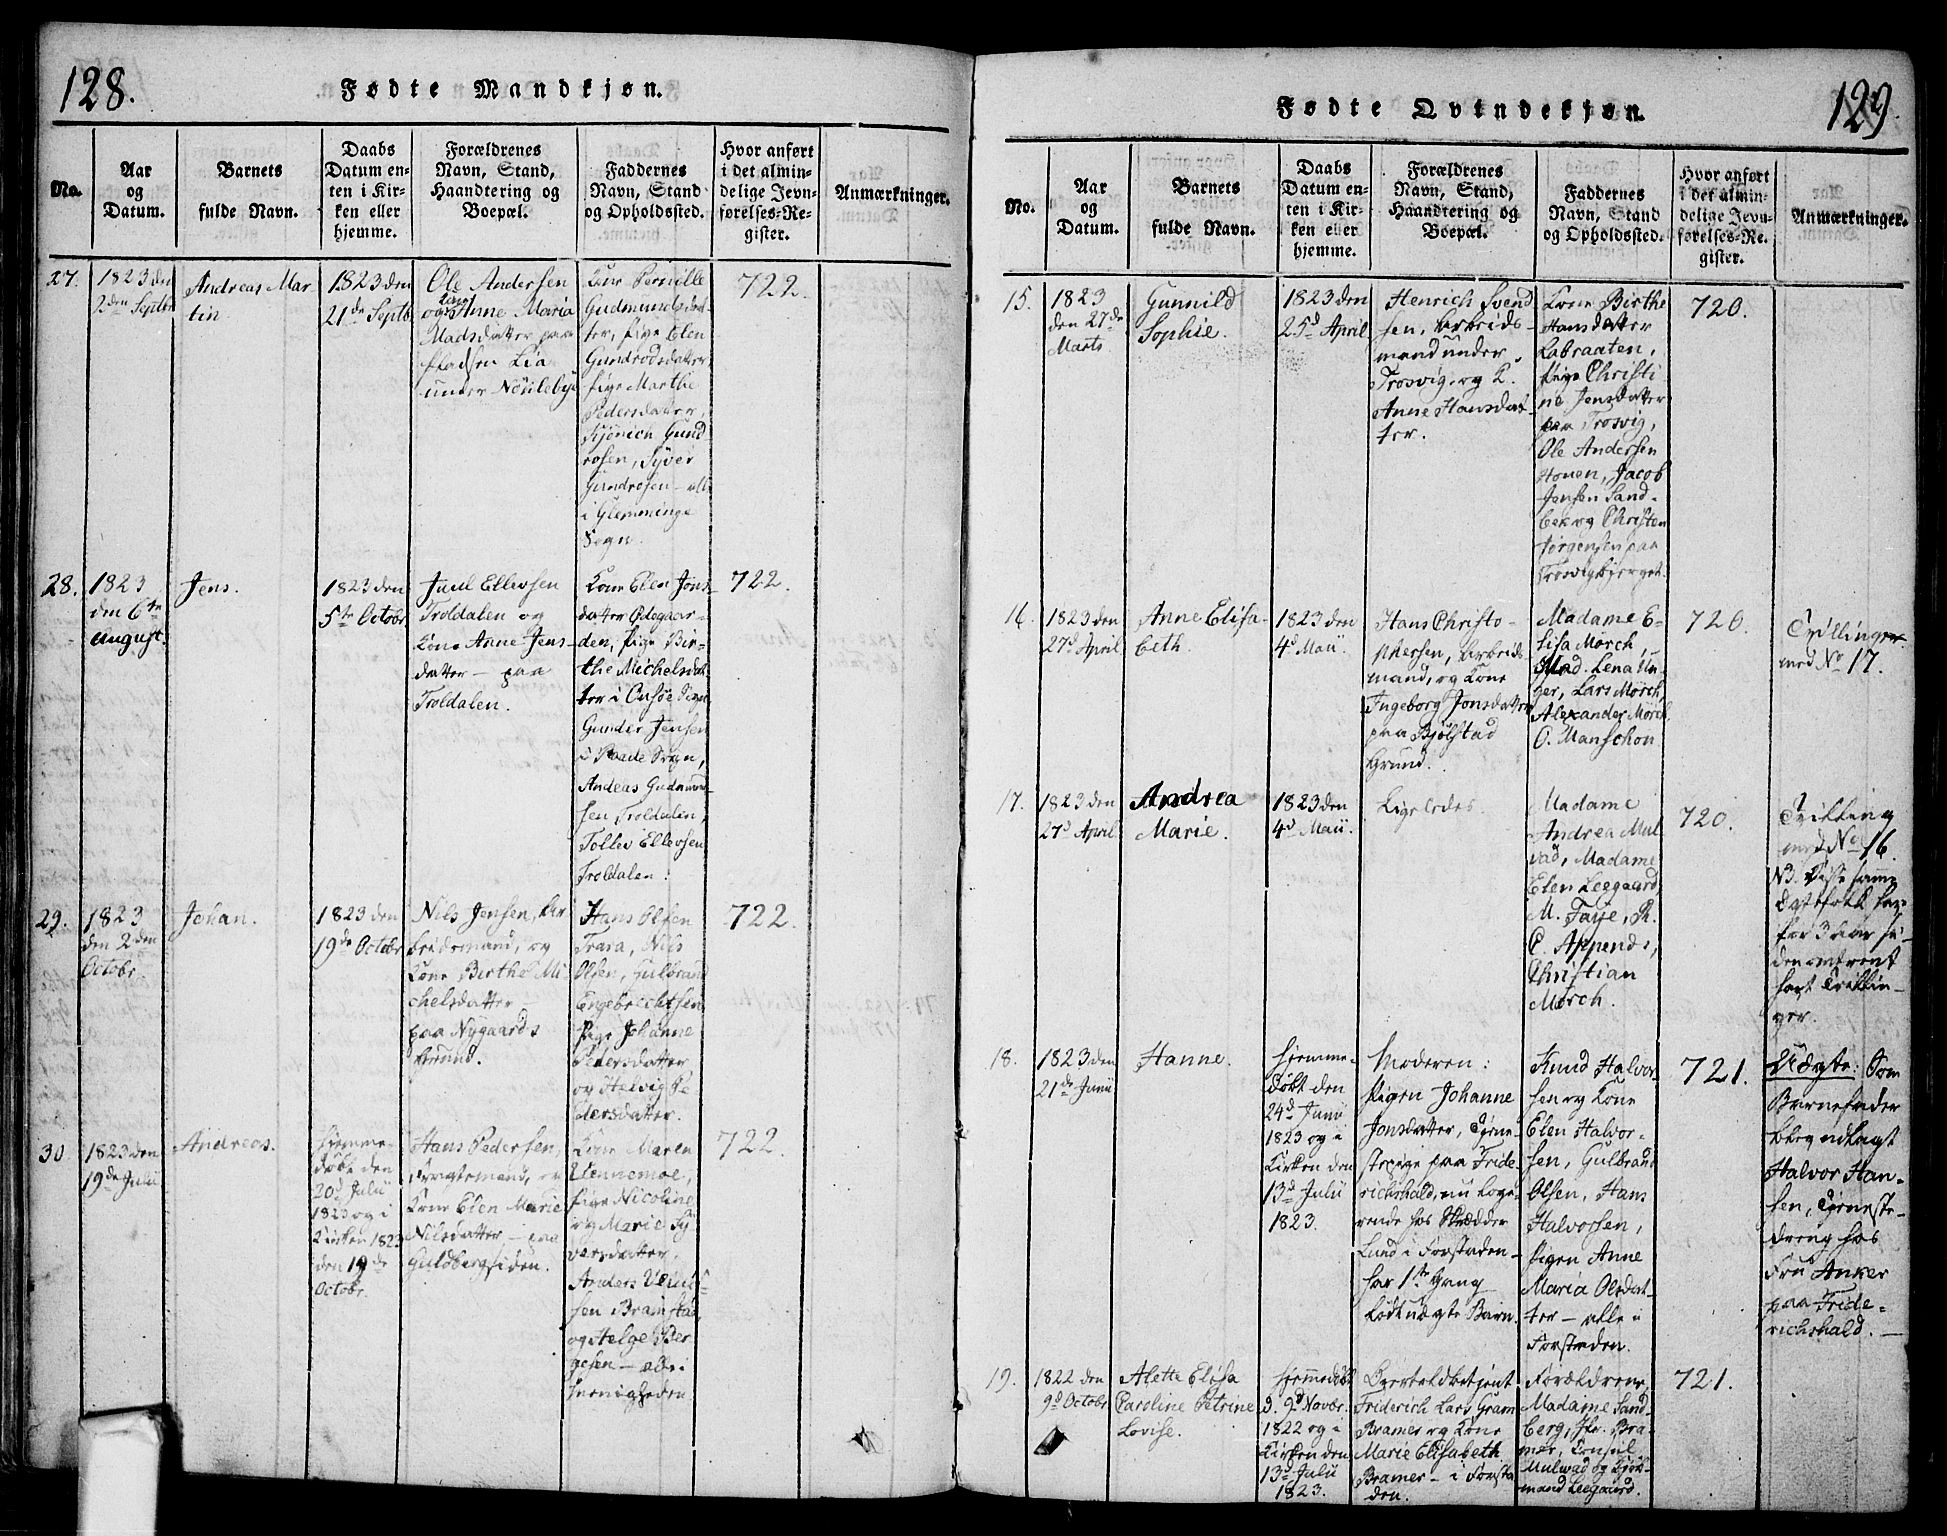 128.
Fødte Mandkjøn.
No.
Aar
og
Datum.
Barnets
fulde Navn.
Daabs
Datum en-
ten i Kir-
ken eller
hjemme.
Forældrenes
Navn, Stand,
Haandtering og
Boepæl.
Faddernes
Navn, Stand
og Opholdssted.
Hvor anført
i det almin-
delige Jevn-
førelses-Re-
gister.
Anmærkninger.
27.
1823 den
2den Septbr
Andreas Mar
tin.
1823 den
21de Septbr
Ole Andersen
og Kone Anne Maria
Madsdatter paa
Pladsen Lia
under Nøiileby
Kone Pernille
Gudmundsdat
ter, Pige Elen
Gundrosdatter
Pige Marthe
Pedersdatter,
Gund
rosen, Syver
Gundrosen – alle
i Glemminge
Sogn.
722.
28.
1823
den 6te
August.
Jens.
1823 den
5te Octobr
Juul Ellevsen
Troldalen og
Kone Anne Jens-
datter – paa
Troldalen.
Kone Elen Jons-
datter Ødegaar-
den, Pige Bir-
the Michelsdat
ter i Onsøe Sogn
Gunder Jensen
i Raade Sogn,
Andeas Gudmund
sen Troldalen,
Tollev Ellevsen
Troldalen.
722.
29.
1823
den 2den
Octobr.
Johan.
1823 den
19de Octobr
Nils Jensen, Ar
beidsmand, og
Kone Birthe Mi
chelsdatter –
paa Nygaards
Grund.
Hans Olsen
Trara, Nils
Olsen, Gulbrand
Engebrechtsen
Pige Johanne
Pedersdatter
og Helvig Pe
dersdatter.
722.
30
1823 den
19de Julii
Andreas.
Hjemme-
døbt den
20d Julii
1823 og i
Kirken 1823
den 19de
Octobr.
Hans Pedersen,
Kone Elen Marie
Nilsdatter – paa
Guldbergsiden.
Kone Maren
Wennemoe,
Pige Nicoline
og Marie Sy
versdatter,
Anders
sen Bramstad,
og Helge Ber
gesen – alle i
Menigheden.
722.
129.
Fødte Qvindekjøn.
No.
Aar
og
Datum.
Barnets
fulde Navn.
Daabs
Datum en-
ten i Kir-
ken eller
hjemme.
Forældrenes
Navn, Stand,
Haandtering og
Boepæl.
Faddernes
Navn, Stand
og Opholdssted.
Hvor anført
i det almin-
delige Jevn-
førelses-Re-
gister.
Anmærkninger.
15.
1823
den 27de
Marts
Gunnild
Sophie.
1823 den
25d April
Henrich Svend
sen, Arbeids-
mand under
Trosvig, og K.
Anne Hansdat-
ter.
Kone Birthe
Hansdatter
Labraaten,
Pige Christi
ne Jensdatter
paa Trosvig,
Ole Andersen
Houen, Jacob
Jensen Sand-
bek og Christen
Jørgensen paa
Trosvigbjerget.
720.
16.
1823 den
27d April
Anne Elisa-
beth.
1823 den
4d Maii.
Hans Christo-
phersen, Arbeids
mand, og Kone
Ingeborg Jonsdatter
paa Bjølstad
Grund.
Madame E-
lisa Mørch,
Mad. Lena Un-
ger, Lars Mørch,
Alexander Mørch
O. Manschon
720.
Tvillinger
med No 17.
17.
1823 den
27d April
Andrea
Marie.
1823 den
4d Maii.
Ligeledes
Madame
Andrea Mul
vad, Madame
Elen Leegaard,
M. Faye, R.
C. Appends,
Christian
Mørch.
720.
Tvilling
med No 16.
NB. Disse samme
Egtefolk har
for 3 Aar si-
den omtrent
havt Tvillin-
ger.
18.
1823 den
21de Junii
Hanne.
Hjemme-
døbt den
24d Junii
1823 og i
Kirken den
13d Julii
1823.
Moderen:
Pigen Johanne
Jonsdatter, Tjene-
stepige paa Fride-
richshald, nu loge-
rende hos Skrædder
Lund i Forstaden –
har 1ste Gang
født uægte Barn.
Knud Halvor-
sen og Kone
Elen Halvor-
sen, Gulbrand
Olsen, Hans
Halvorsen,
Pigen Anne
Maria Olsdat-
ter – alle i
Forstaden.
721.
Uægte: Som
Barnefader
blev udlagt
Halvor Han-
sen, Tjeneste-
dreng hos
Fru Anker
paa Fride-
richshald. –
19.
1822 den
9d Octobr
Alette Elisa
Caroline Petrine
Lovise.
Hjemmedøbt
d. 9d Novbr.
1822 og i
Kirken den
13d Julii
1823.
Overtoldbetjent
Friderich Lars Gram
Bramer og Kone
Marie Elisabeth
Bramer – i Forsta
den.
Forældrene,
Madame Sand-
berg, Hr. Bra-
mer, Consul
Mulwad og Kjøb-
mand Leegaard.
721.